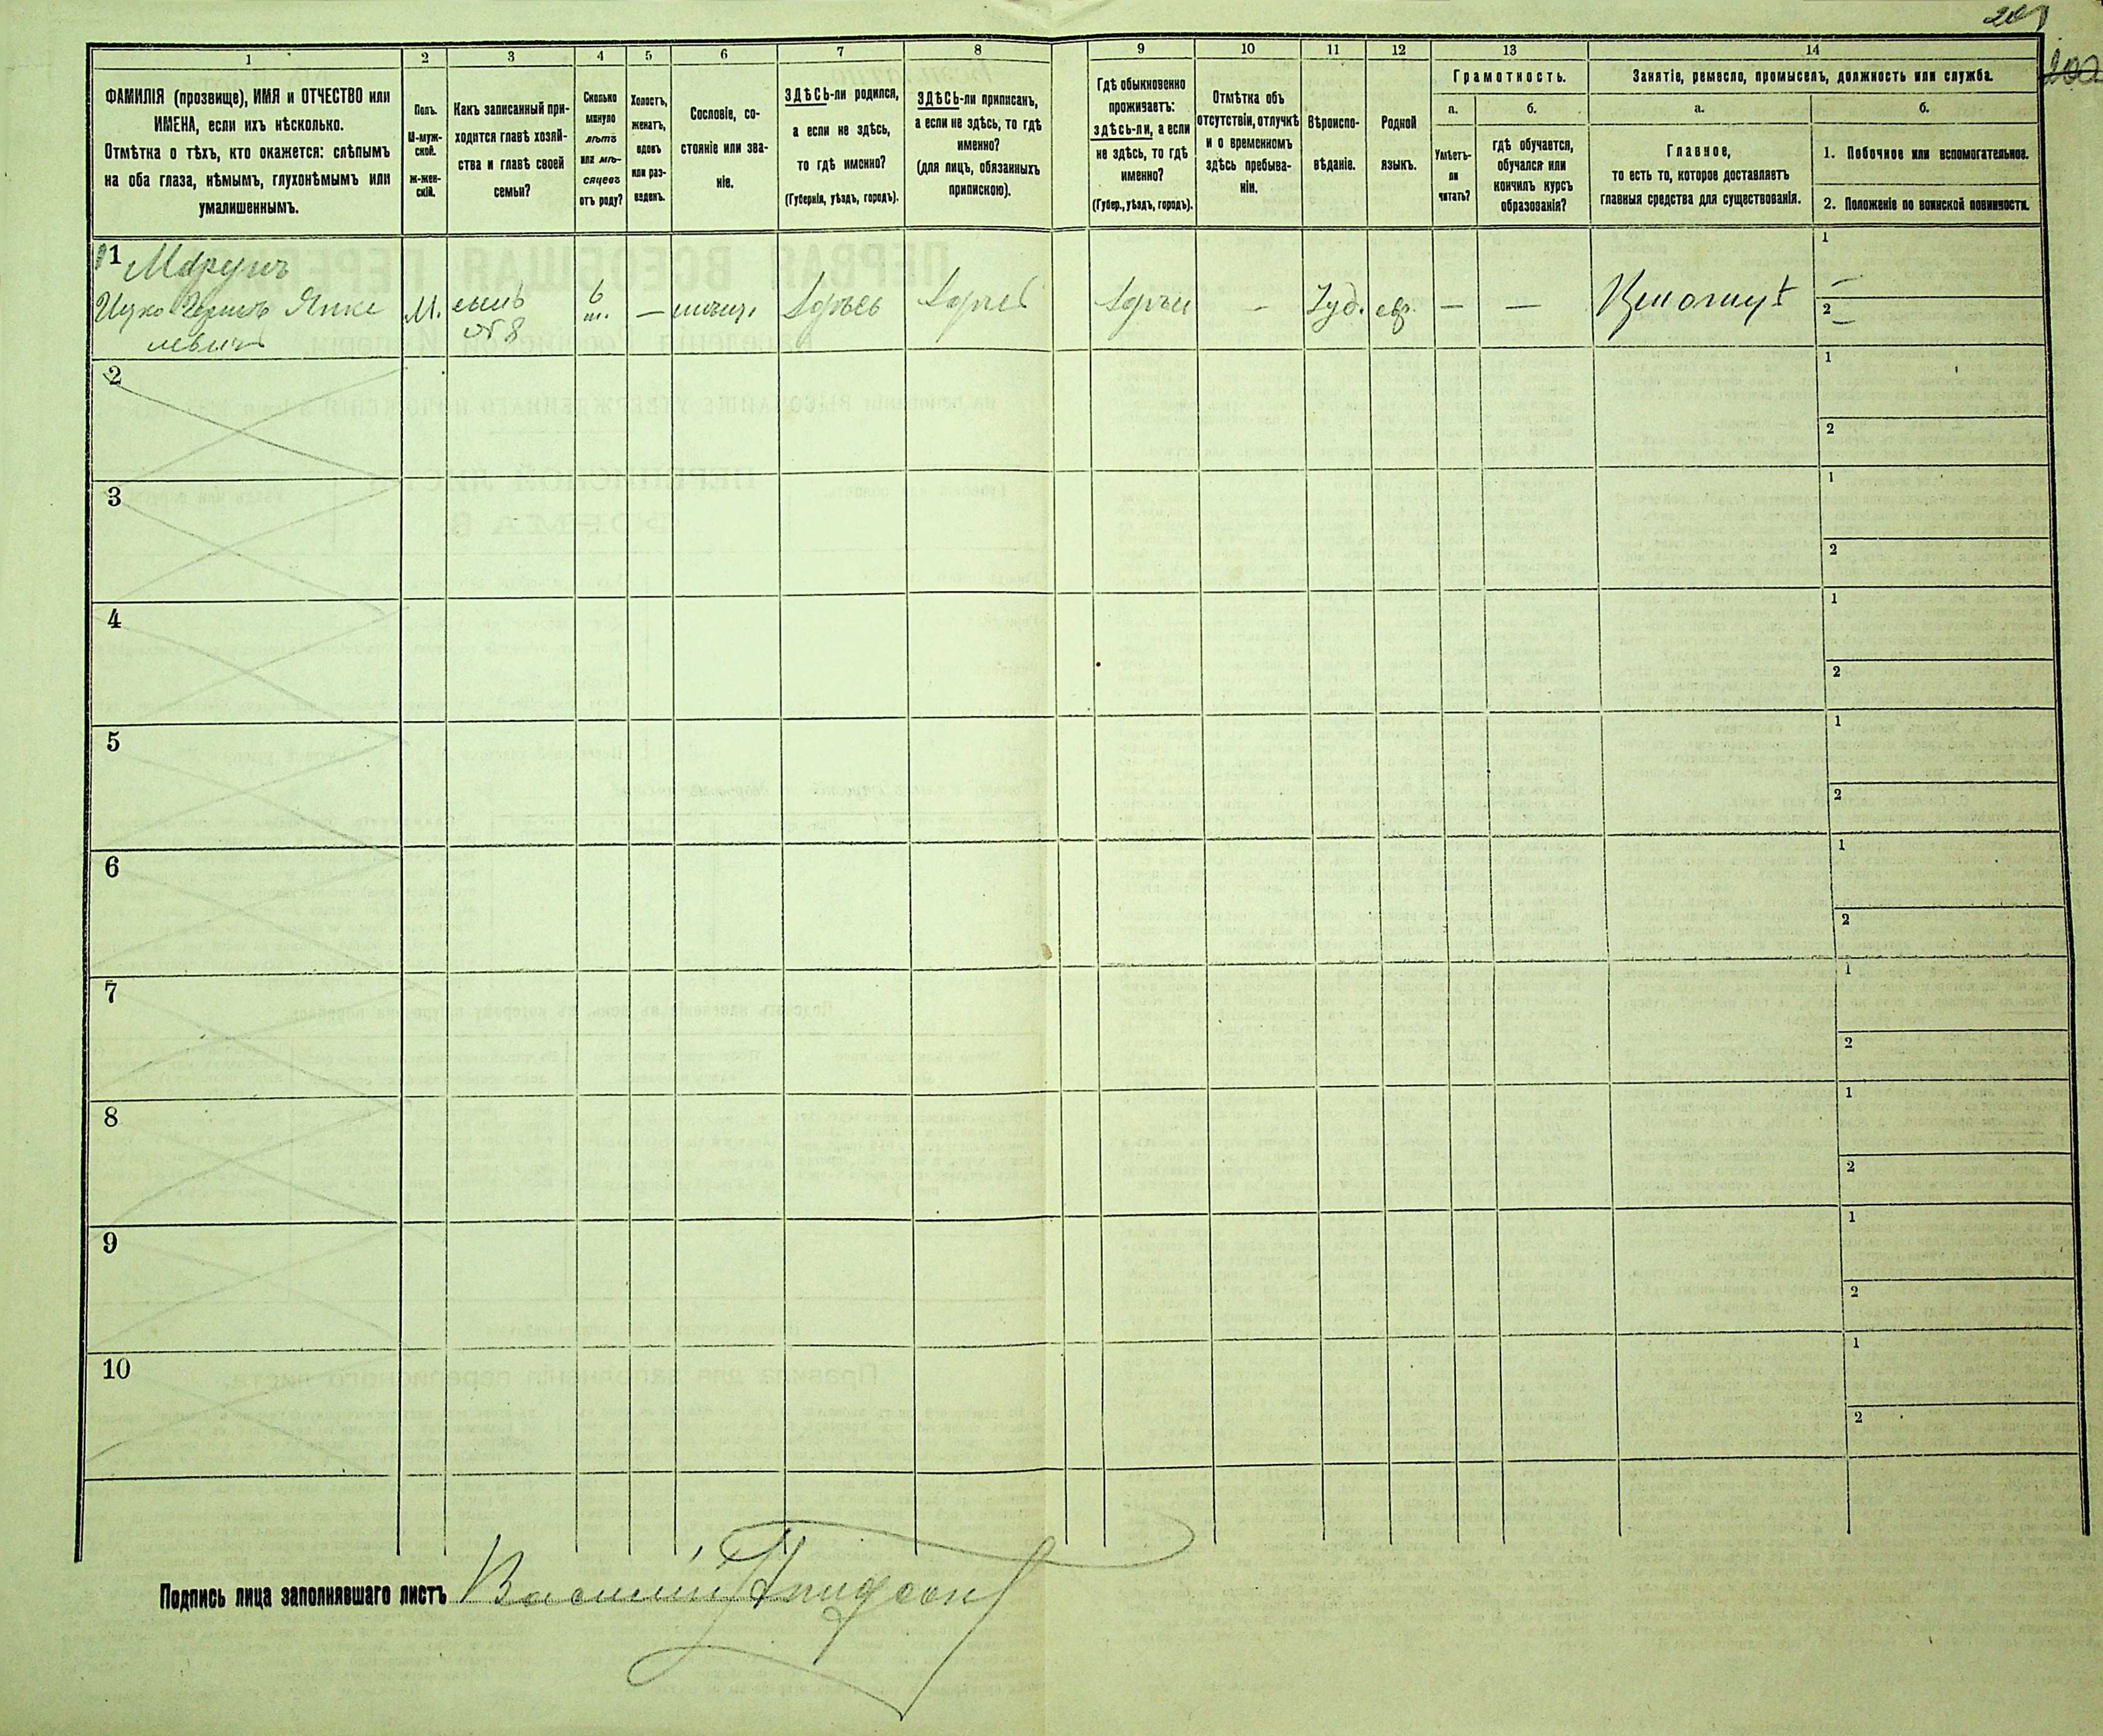 201
200
1
2
3
4
5
6
7
8
9
10
11
12
13
14
ФАМИЛІЯ (прозвище), ИМЯ и ОТЧЕСТВО или
ИМЕНА, если ихъ нѣсколько.
Отмѣтка о тѣхъ, кто окажется: слѣпымъ
на оба глаза, нѣмымъ, глухонѣмымъ или
умалишеннымъ.
Полъ.
М-муж-
ской.
Ж-жен-
скій.
Какъ записанный при-
ходится главѣ хозяй-
ства и главѣ своей
семьи?
Сколько
минуло
лѣтъ
или мѣ-
сяцевъ
отъ роду?
Холостъ,
женатъ,
вдовъ
или раз-
веденъ.
Сословіе, со-
стояніе или зва-
ніе.
ЗДѢСЬ-ли родился,
а если не здѣсь,
то гдѣ именно?
(Губернія, уѣздъ, городъ).
ЗДѢСЬ-ли приписанъ,
а если не здѣсь, то гдѣ
именно?
(для лицъ, обязанныхъ
припискою).
Гдѣ обыкновенно
проживаетъ:
здѣсь-ли, а если
не здѣсь, то гдѣ
именно?
(Губер., уѣздъ, городъ).
Отмѣтка объ
отсутствіи, отлучкѣ
и о временномъ
здѣсь пребыва-
ніи.
Вѣроиспо-
вѣданіе.
Родной
языкъ.
Грамотность.
а.
б.
Умѣетъ-
ли
читать?
гдѣ обучается,
обучался или
кончилъ курсъ
образованія?
Занятіе, ремесло, промыселъ, должность или служба.
а.
б.
Главное,
то есть то, которое доставляетъ
главныя средства для существованія.
1. Побочное или вспомогательное.
2. Положеніе по воинской повинности.
1
М.
6
—
Іуд.
евр.
—
—
1
—
2
—
2
1
2
3
1
2
4
1
2
5
1
2
6
1
2
7
1
2
8
1
2
9
1
2
10
1
2
Подпись лица заполнявшаго листъ Василій